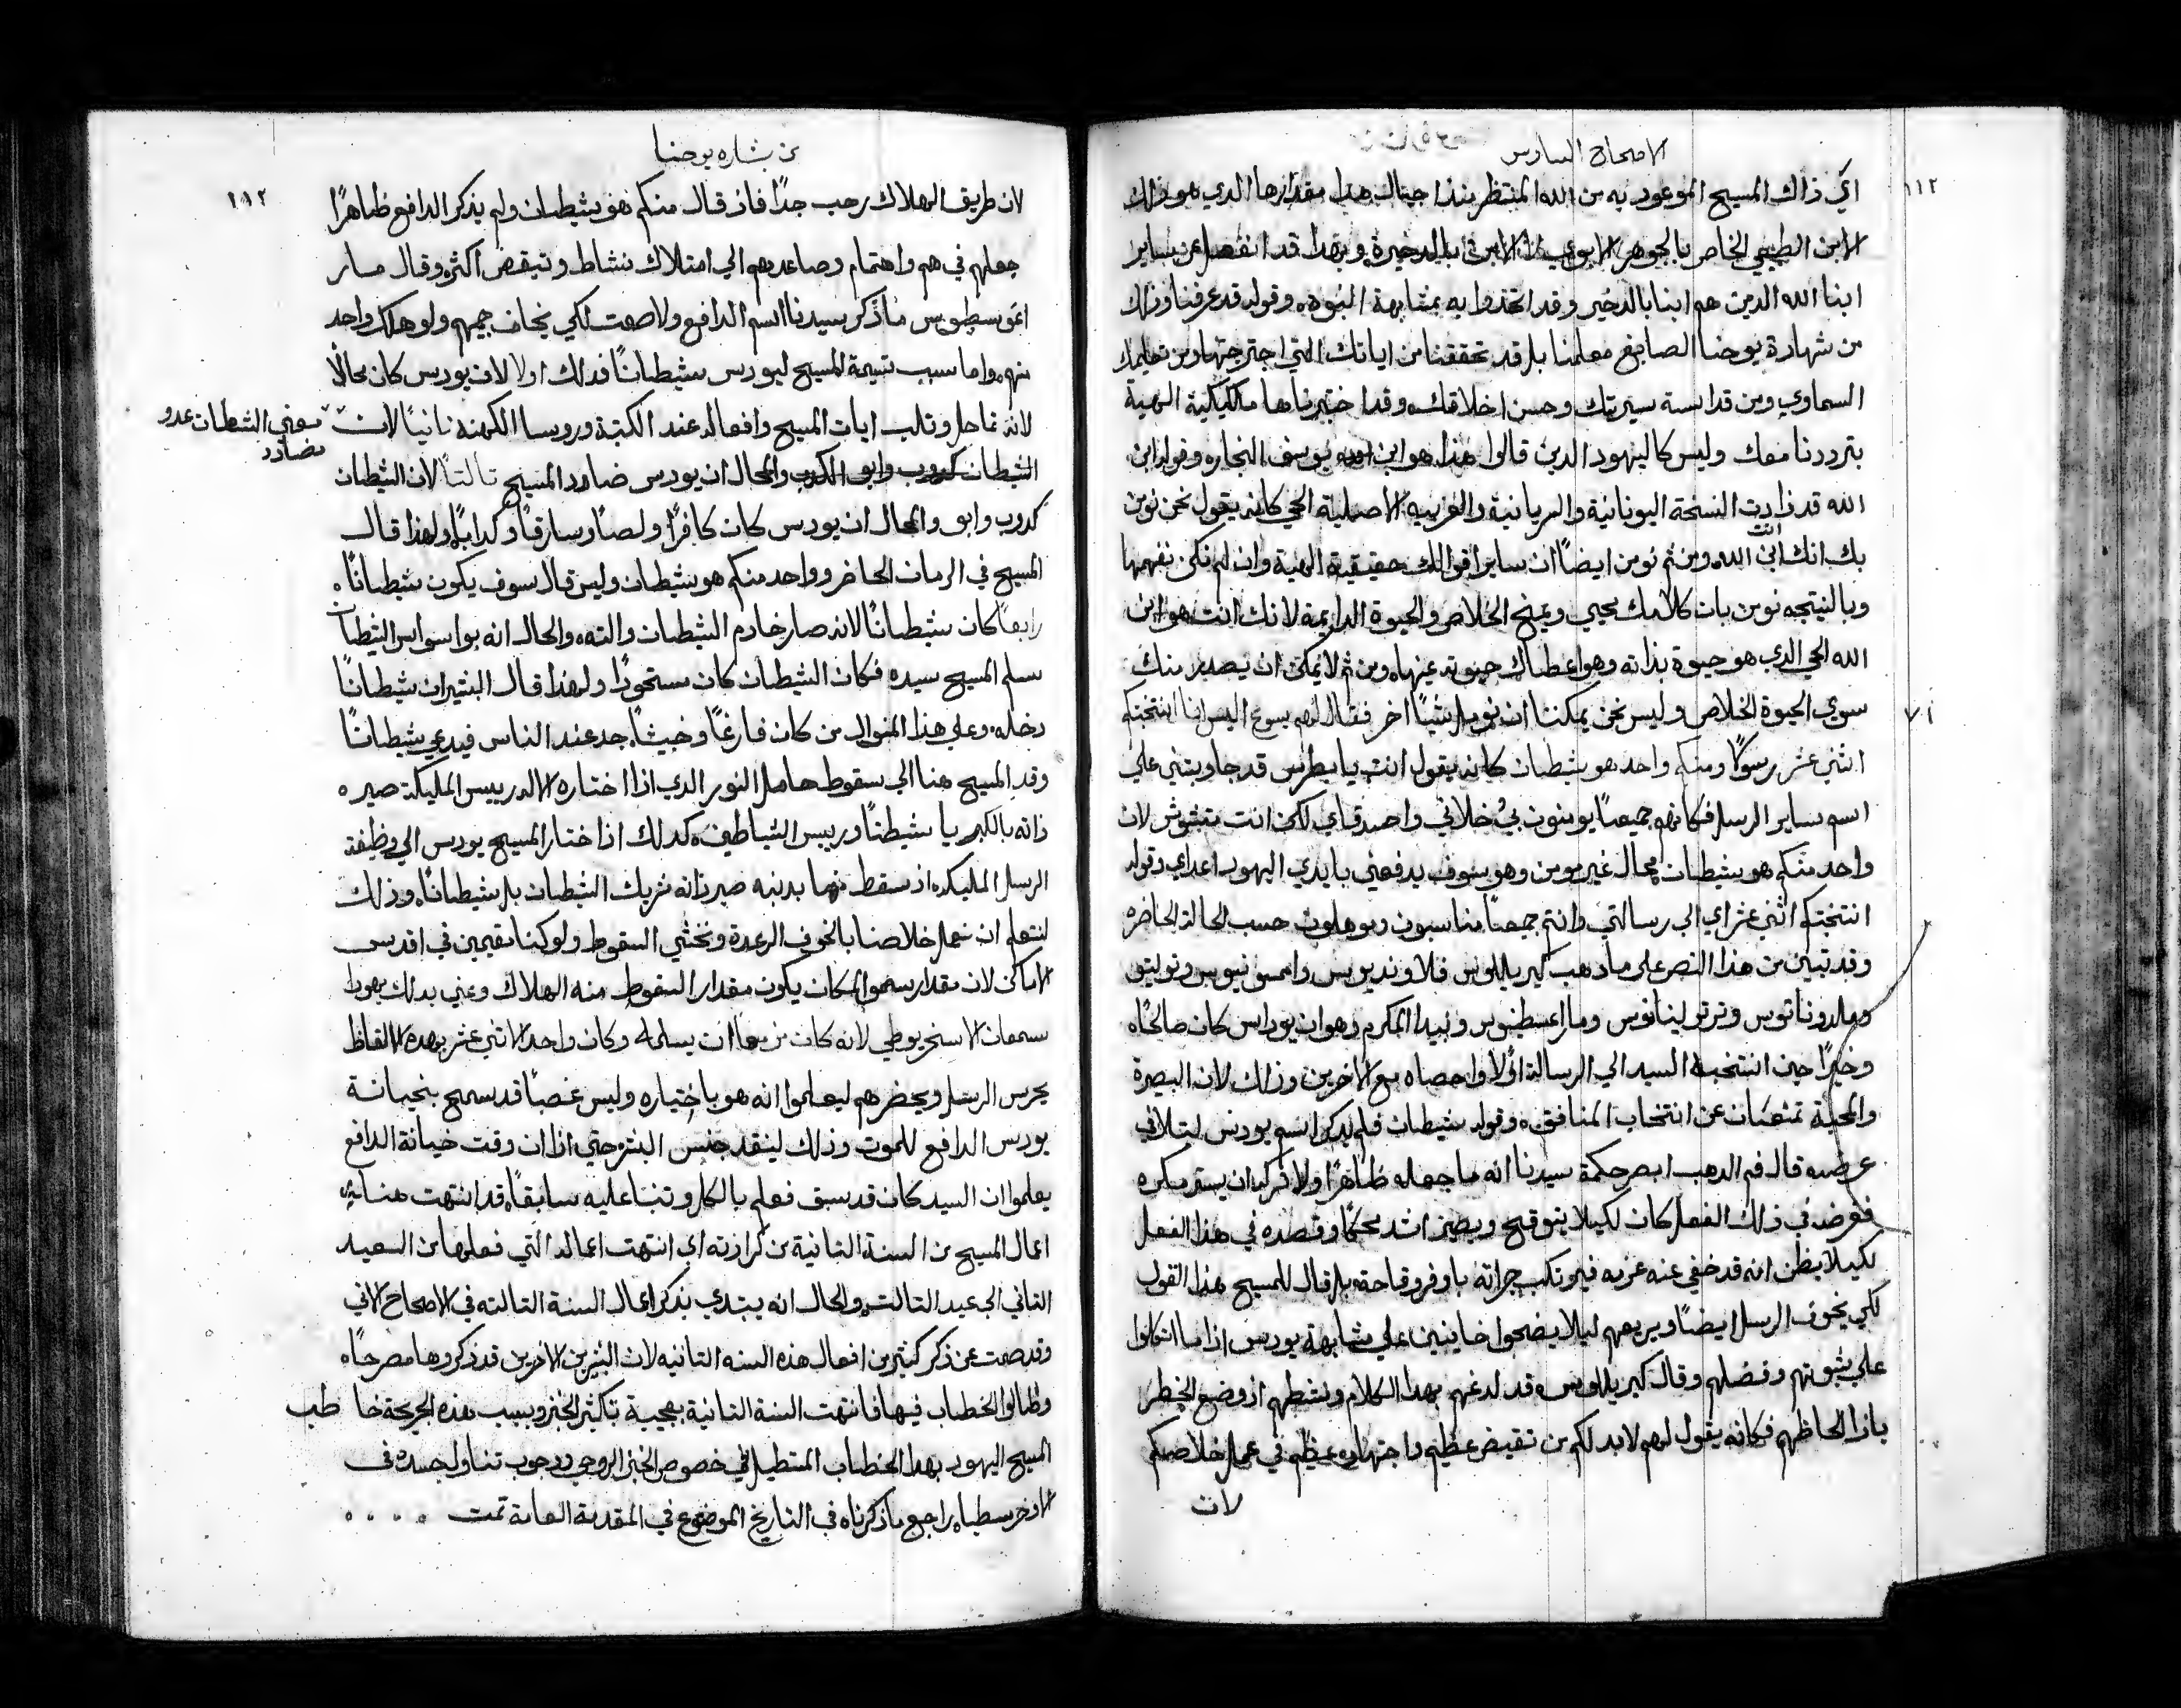 الاصحاح السادس
١١٢
اي ذاك المسيح الموعود به من الله المنتظر منذ اجيال هذا مقدارها الدي هو ذلك
الابن الطبيعي الخاص بالجوهر الابوي لا الابن بالدخيرة وبهدا قد انفصل عن ساير
ابنا الله الدين هم ابنا بالدخير وقد اتخذوا به بمشابهة البنوه وقوله قد عرفنا وذلك
من شهادة يوحنا الصابغ معلمنا بل قد تحققنا من اياتك التي اجترحتها ومن تعليمك
السماوي ومن قداسة سيرتك وحسن اخلاقك وقد اختبرناها بالكيكية الهية
بترددنا معك وليس كاليهود الدين قالوا هذا هو ابن يوسف النجار وقوله ابن
الله قد زادت النسخة اليونانية والسريانية والعربيه الاصلية الحي كانه يقول نحن نومن
بك انك انت ابن الله ومن ثم نومن ايضاً ان ساير اقوالك حقيقية الهية وان لم نكن نفهمها
وبالنتيجه نومن بان كلامك يحيي ويمنح الخلاص والحيوة الدايمة لانك انت هو ابن
الله الحي الدي هو حيوة بذاته وهو اعطاك حيوته عينها ومن ثم لا يمكن ان يصدر منك
سوي الحيوة الخلاص وليس نحن يمكننا ان نومل شياً اخر فقال لهم يسوع اليس انا انتخبتكم
٧١
اثني عشر رسولاً ومنكم واحد هو شيطان كانه يقول انت يا بطرس قد جاوبتني علي
اسم ساير الرسل فكانهم جميعاً يومنون بي خلاني واصدقاي لكن انت متشوش لان
واحد منكم هو شيطان محال غير مومن وهو سوف يدفعني بايدي اليهود اعداي وقوله
انتخبتكم اثني عشر اي الي رسالتي وانتم جميعاً مناسبون وموهلون حسب الحالة الحاضره
وقد تبين من هذا النص علي ما دهب كيريللوس فلاونديوس وامسونيوس وتوليتو
ومالدوناتوس وترتوليانوس ومار اغسطينوس وبيدا المكرم وهو ان يوداس كان صالحاً
وخيراً حين انتخبه السيد الي الرسالة اولاً واحصاه مع الاخرين وذلك لان البصيرة
والمحبة تمتنعان عن انتخاب المنافق وقوله شيطان فلم يدكر اسم يودس ليتلافي
عرضه قال فم الدهب ابصر حكمة سيدنا انه ما جعله ظاهراً ولا تركه ان يستر مكره
فغرضه في ذلك الفعل كان لكيلا يتوقح ويصير اشد محكاً وقصده في هذا الفعل
لكيلا يظن انه قد خفي عنه عزمه فيرتكب جراته باوفر وقاحة بل قال للمسيح هذا القول
لكي يخوف الرسل ايضاً ويريعهم ليلا يضحوا خاينين علي مشابهة يودس اذا ما اتكلوا
علي ثبوتهم وفضلهم وقال كيريللوس قد لدغهم بهدا الكلام ونشطهم اذ وضع الخطر
بازا الحاظهم فكانه يقول لهم لا بد لكم من تيقيض عظيم واجتهاد عظيم في عمل خلاصكم
لان
من بشاره يوحنا
١١٢
لان طريق الهلاك رحب جداً فاذ قال منكم هو شيطان ولم يذكر الدافع ظاهراً
جعلهم في هم واهتمام وصاعدهم الي امتلاك نشاط وتيقيض اكثره وقال مار
اغوسطينوس ما ذكر سيدنا اسم الدافع ولا صمت لكي يخاف جميعهم ولو هلك واحد
منهم واما سبب تسمية المسيح ليودس شيطاناً فدلك اولا لان يودس كان محالًا
لانه تماحل وثلب ايات المسيح وافعاله عند الكتبة وروسا الكهنه ثانياً لان
معني الشيطان عدو
مضادد
الشيطان كدوب وابو الكدب والحال ان يودس ضادد المسيح ثالثاً لان الشيطان
كدوب وابو والحال ان يودس كان كافراً ولصاً وسارقاً وكداباً ولهذا قال
المسيح في الزمان الحاضر وواحد منكم هو شيطان وليس قال سوف يكون شيطاناً
رابعاً كان شيطاناً لانه صار خادم الشيطان والته والحال انه بوسواس الشيطان
سلم المسيح سيده فكان الشيطان كان مستحوداً ولهذا قال البشير ان شيطاناً
دخله وعلي هذا المنوال من كان فارغاً وخبيثاً جد عند الناس فيدعي شيطاناً
وقد المسيح هنا الي سقوط حامل النور الدي اذا اختاره الاله رييس المليكة صير
ذاته بالكبريا شيطاناً ورييس الشياطين كدلك اذا اختار المسيح يودس الي وظيفة
الرسل المليكه اذ سقط منها بدنبه صير ذاته شريك الشيطان بل شيطاناً وذلك
لنتعلم ان نعمل خلاصنا بالخوف الرعدة ونخشي السقوط ولو كنا مقيمين في اقدس
الاماكن لان مقدار سمو المكان يكون مقدار السقوط منه الهلاك وعني بدلك يهودا
سمعان الاسخريوطي لانه كان مزمعا ان يسلمه وكان واحد الاثني عشر بهده الالفاظ
يحرس الرسل ويحضرهم ليعلموا انه هو باختياره وليس غصباً قد سمح بخيانة
يودس الدافع للموت وذلك لينقد جنس البشر حتي اذا ان وقت خيانة الدافع
يعلموا ان السيد كان قد سبق فعلم بالكل وتنبا عليه سابقاً قد انتهت هنا
اعمال المسيح من السنة الثانية من كرازته اي انتهت اعماله التي فعلها من السعيد
الثاني الي عيد الثالث والحال انه يبتدي بذكر اعمال السنة الثالثه في الاصحاح الاتي
وقد صمت عن ذكر كثير من افعال هذه السنه الثانيه لان البشيرين الاخرين قد ذكروها مصرحاً
وطالوا الخطاب فيها فانتهت السنة الثانية بعجيبة تكثير الخبز وبسبب هذه العجيبة خاطب
المسيح اليهود بهدا الخطاب المتطيل في خصوص الخبز الروحي ووجوب تناول جسده في
الاوخرسطيا راجع ما ذكرناه في التاريخ الموضوع في المقدمة العامة تمت